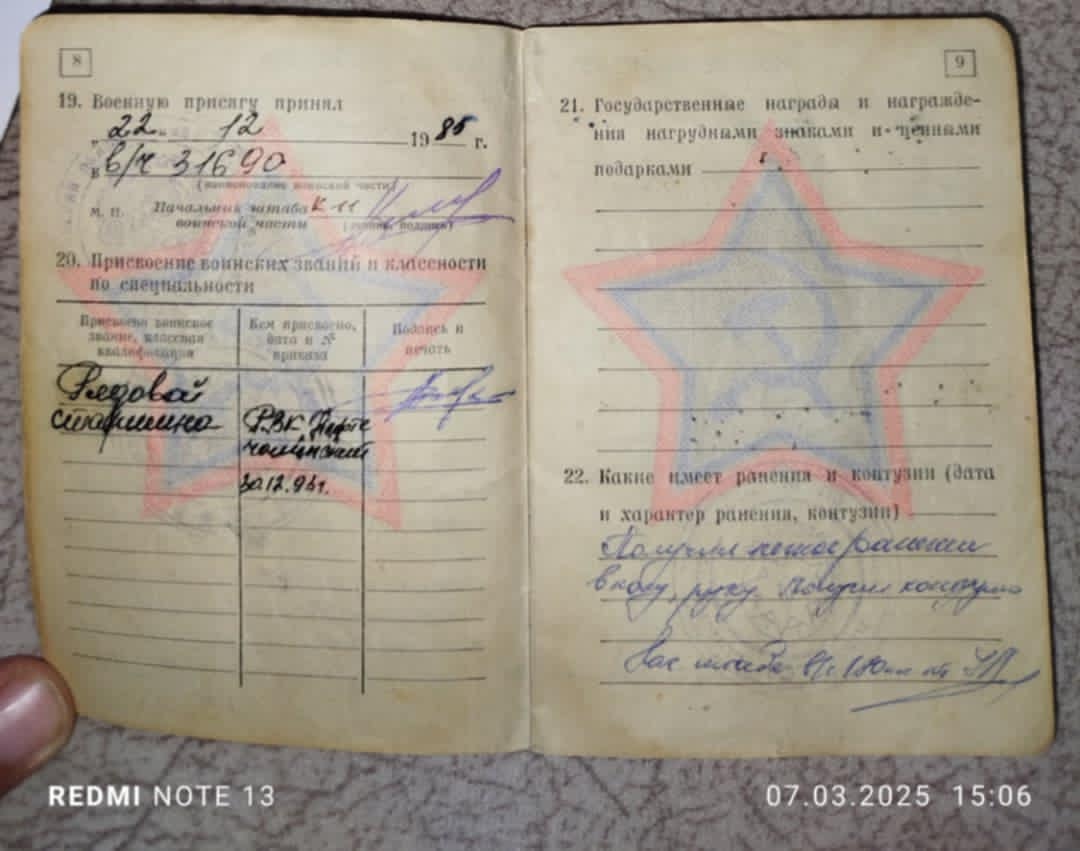 8
19. Военную присягу принял
„ 22 " 12 1985 г.
в в/ч 31690
(наименование воинской части)
М. П. Начальник штаба
воинской части
20. Присвоение воинских званий и классности
по специальности
Присвоено воинское звание, классная квалификация
Кем присвоено, дата и № приказа
Подпись и печать
Рядовой
старшина
РВК
30.12.93г.
9
21. Государственные награды и награжде-
ния нагрудными знаками и ценными
подарками
22. Какие имеет ранения и контузии (дата
и характер ранения, контузии)
Получил ранения
в ногу, руку. Получил контузию
Нач штаба в/ч
REDMI NOTE 13
07.03.2025 15:06